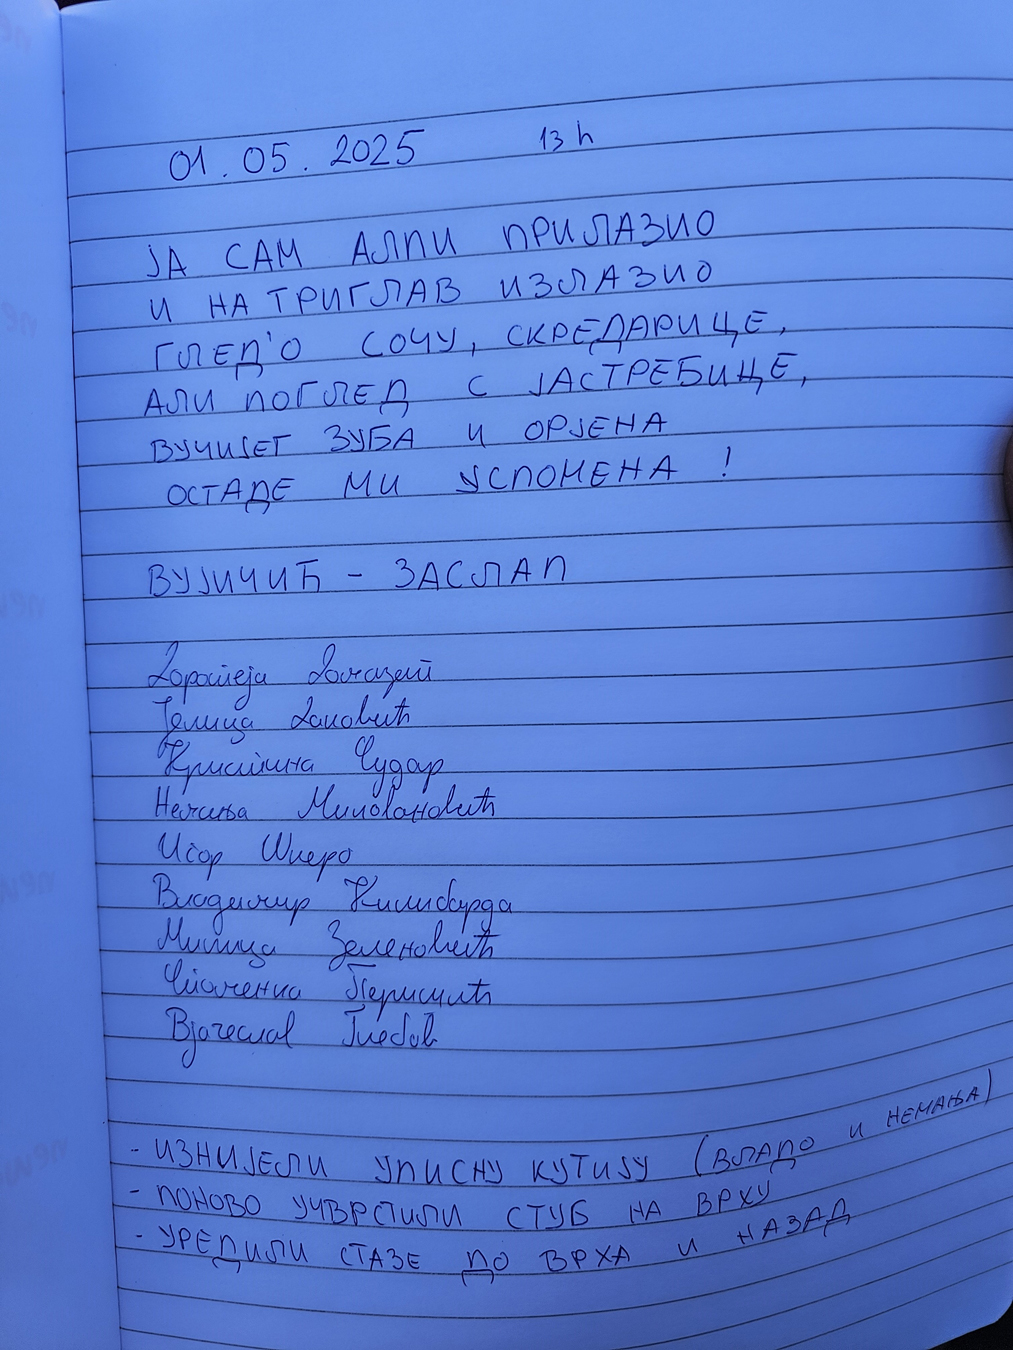 01.05.2025 13 h
ЈА САМ АЛПИ ПРИЛАЗИО
И НА ТРИГЛАВ ИЗЛАЗИО
ГЛЕД'О СОЧУ, СКРЕДАРИЦЕ,
АЛИ ПОГЛЕД С ЈАСТРЕБИЦЕ,
ВУЧИЈЕГ ЗУБА И ОРЈЕНА
ОСТАДЕ МИ УСПОМЕНА!
ВУЈИЧИЋ - ЗАСЛАП
Доротеја
Јелица Даковић
Кристина Чудар
Немања Миловановић
Игор Шкеро
Владимир Килибарда
Милица Зеленовић
Перишић
Вјачеслав Глебов
- ИЗНИЈЕЛИ УПИСНУ КУТИЈУ (ВЛАДО И НЕМАЊА)
- ПОНОВО УЧВРСТИЛИ СТУБ НА ВРХУ
- УРЕДИЛИ СТАЗЕ ДО ВРХА И НАЗАД